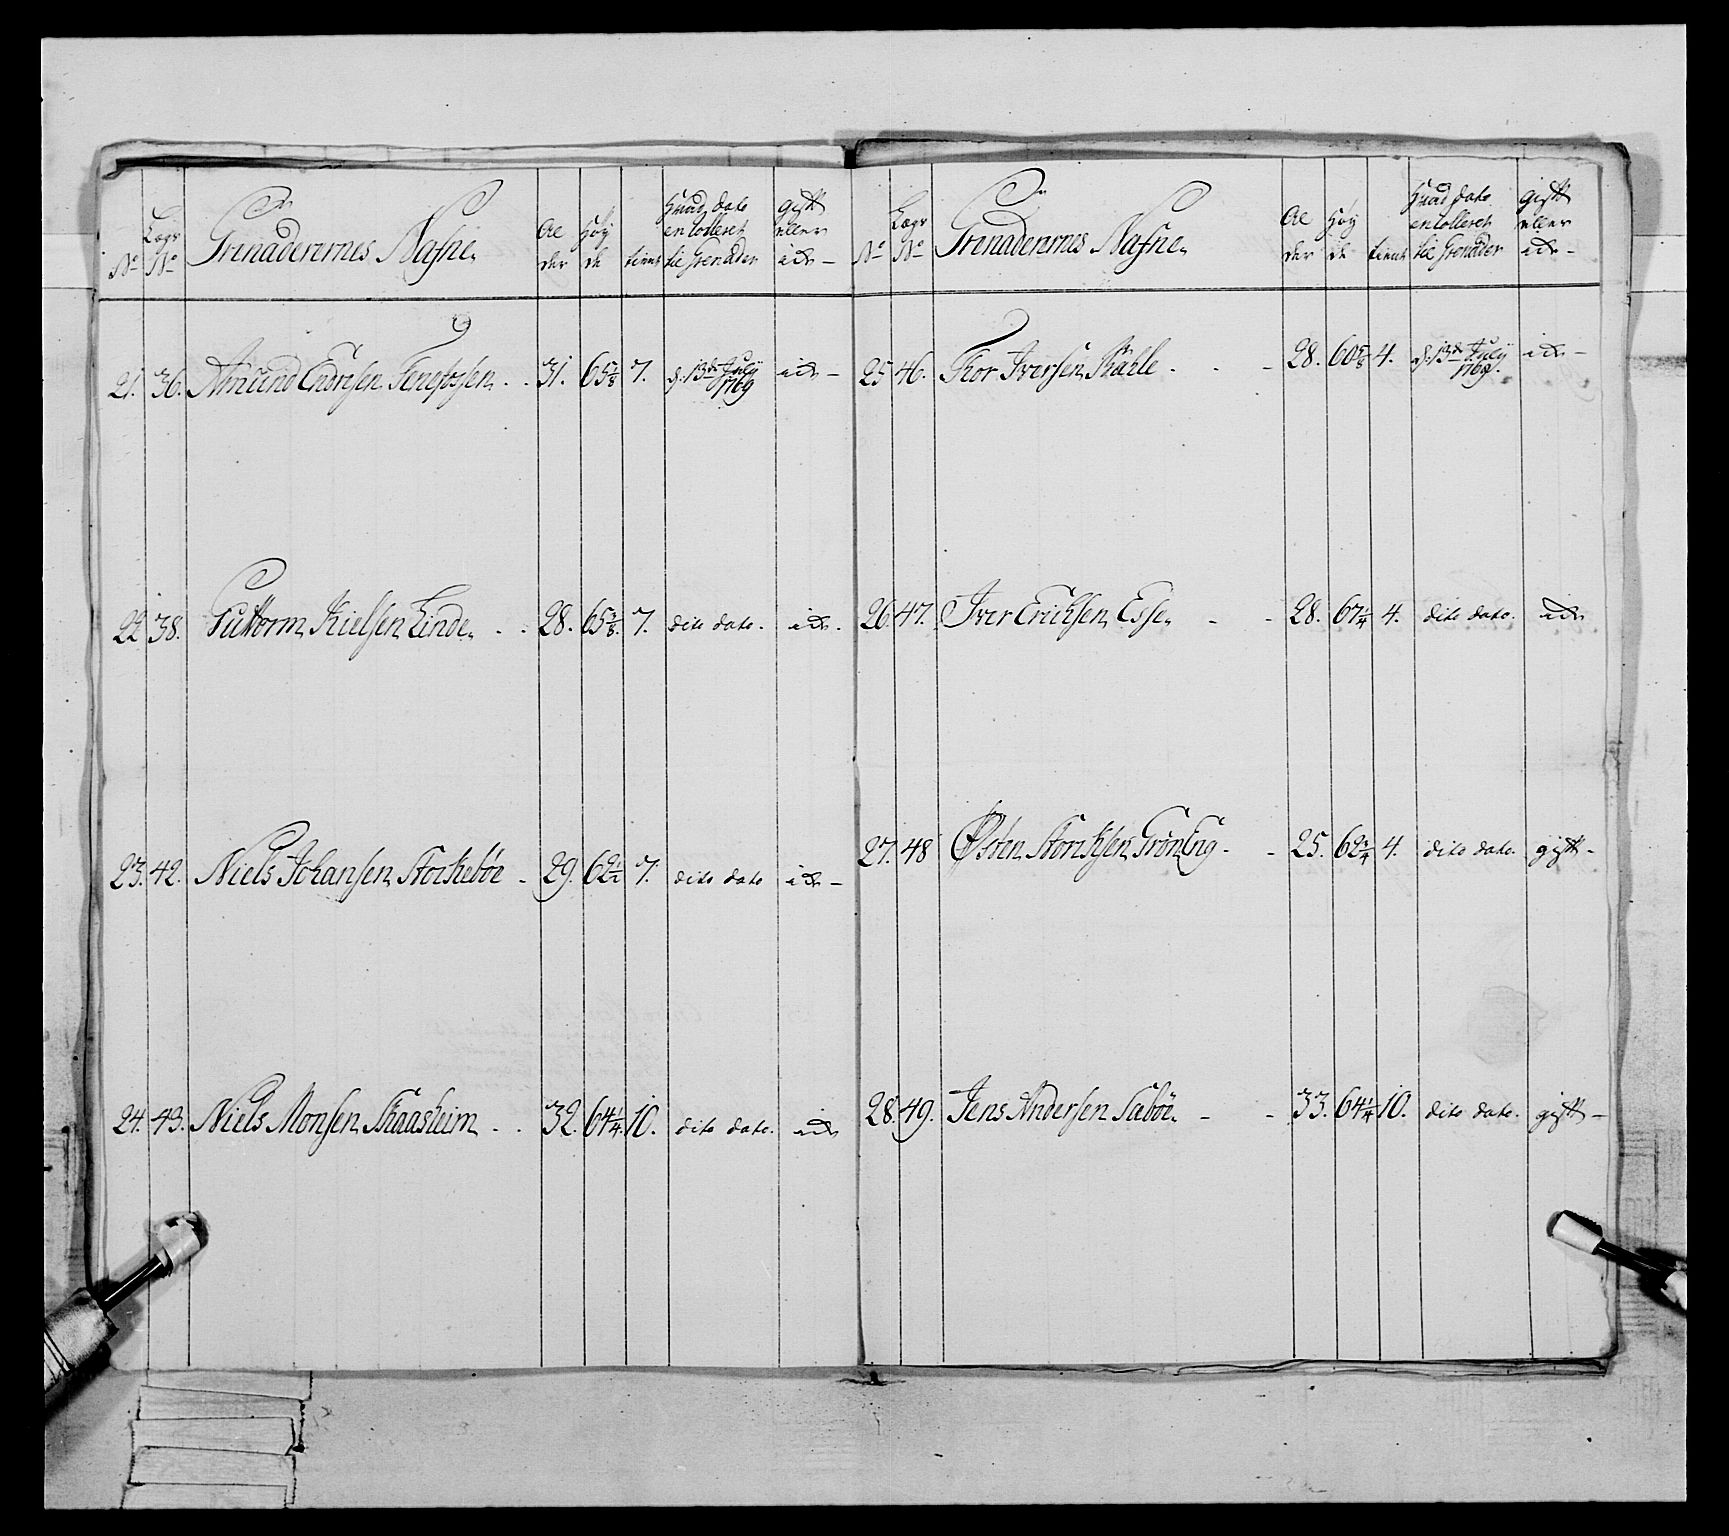 No
Lægs No
Grenaderernes Nafne
Al der
Høy de
tient
Hvad dato enrolleret til Grenader
gift eller ei
21. 36. Amund Endresen - - 31. 65 7. d. 13de July 1769 ei -
22 38. Guttorm Nielsen Linde - - 28. 65 3/8. 7. dito dato. ei -
23. 42. Niels Johansen Storkebøe - 29. 62 1/2 7. dito dato ei -
24. 43. Niels Monsen Skaasheim - - 32. 64 1/4. 10. dito dato. ei
No
Lægs No
Grenaderernes Nafne
Al der
Høy de
tient
Hvad dato enrolleret til Grenader
gift eller ei -
25 46. Thor Iversen - - - 28. 60 5/8 4. d. 13de July 1769. ei -
26. 47. Iver Erichsen Esse - - 28. 67 1/4 4. dito dato. ei
27. 48 Østen - - 25. 62 3/4 4. dito dato. gift -
28. 49. Jens Andersen Sæbøe - - 33. 64 1/4 10. dito dato. gift -